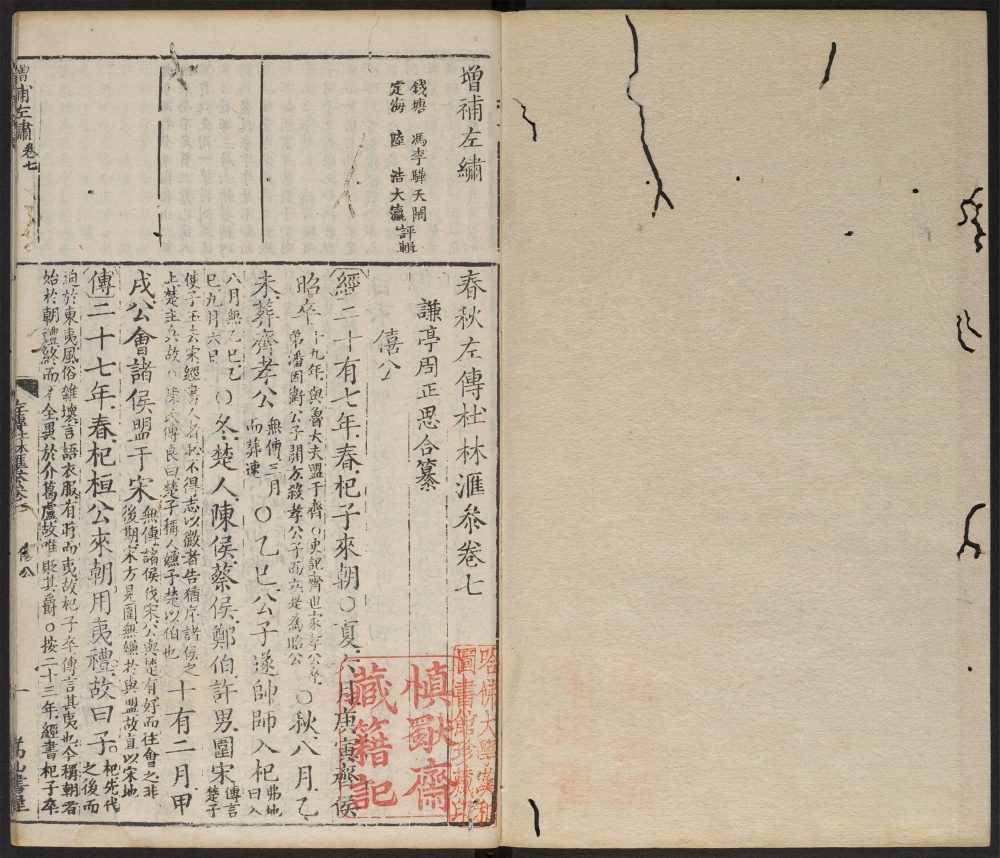 增補左繡
錢塘 馮李驊天閑
定海 陸浩大瀛 評輯
增補左繡 卷七
春秋左傳杜林滙叅卷七
謙亭周正思合纂
僖公
經二十有七年春杞子來朝○夏六月庚寅齊侯
昭卒十九年與魯大夫盟于齊○史記齊世家孝公卒弟潘因衛公子開方殺孝公子而立是為昭公○秋八月乙
未葬齊孝公無傳三月而葬速○乙巳公子遂帥師入杞弗地曰入
八月無乙巳乙巳九月六日○冬楚人陳侯蔡侯鄭伯許男圍宋傳言楚子
使子玉去宋經書人者恥不得志以微者告猶序諸侯之上楚主兵故○陳氏傅良曰楚子稱人嫌予楚以伯也十有二月甲
戌公會諸侯盟于宋無傳諸侯伐宋公與楚有好而往會之非後期宋方見圍無嫌於與盟故直以宋地
傳二十七年春杞桓公來朝用夷禮故曰子杞先代之後而
迫於東夷風俗雜壞言語衣服有時而夷故杞子卒傳言其夷也今稱朝者
始於朝禮終而不全異於介葛盧故唯貶其爵○按二十三年經書杞子卒
僖公
一
慎獻齋
藏籍記
哈佛大學漢和
圖書館珍藏印